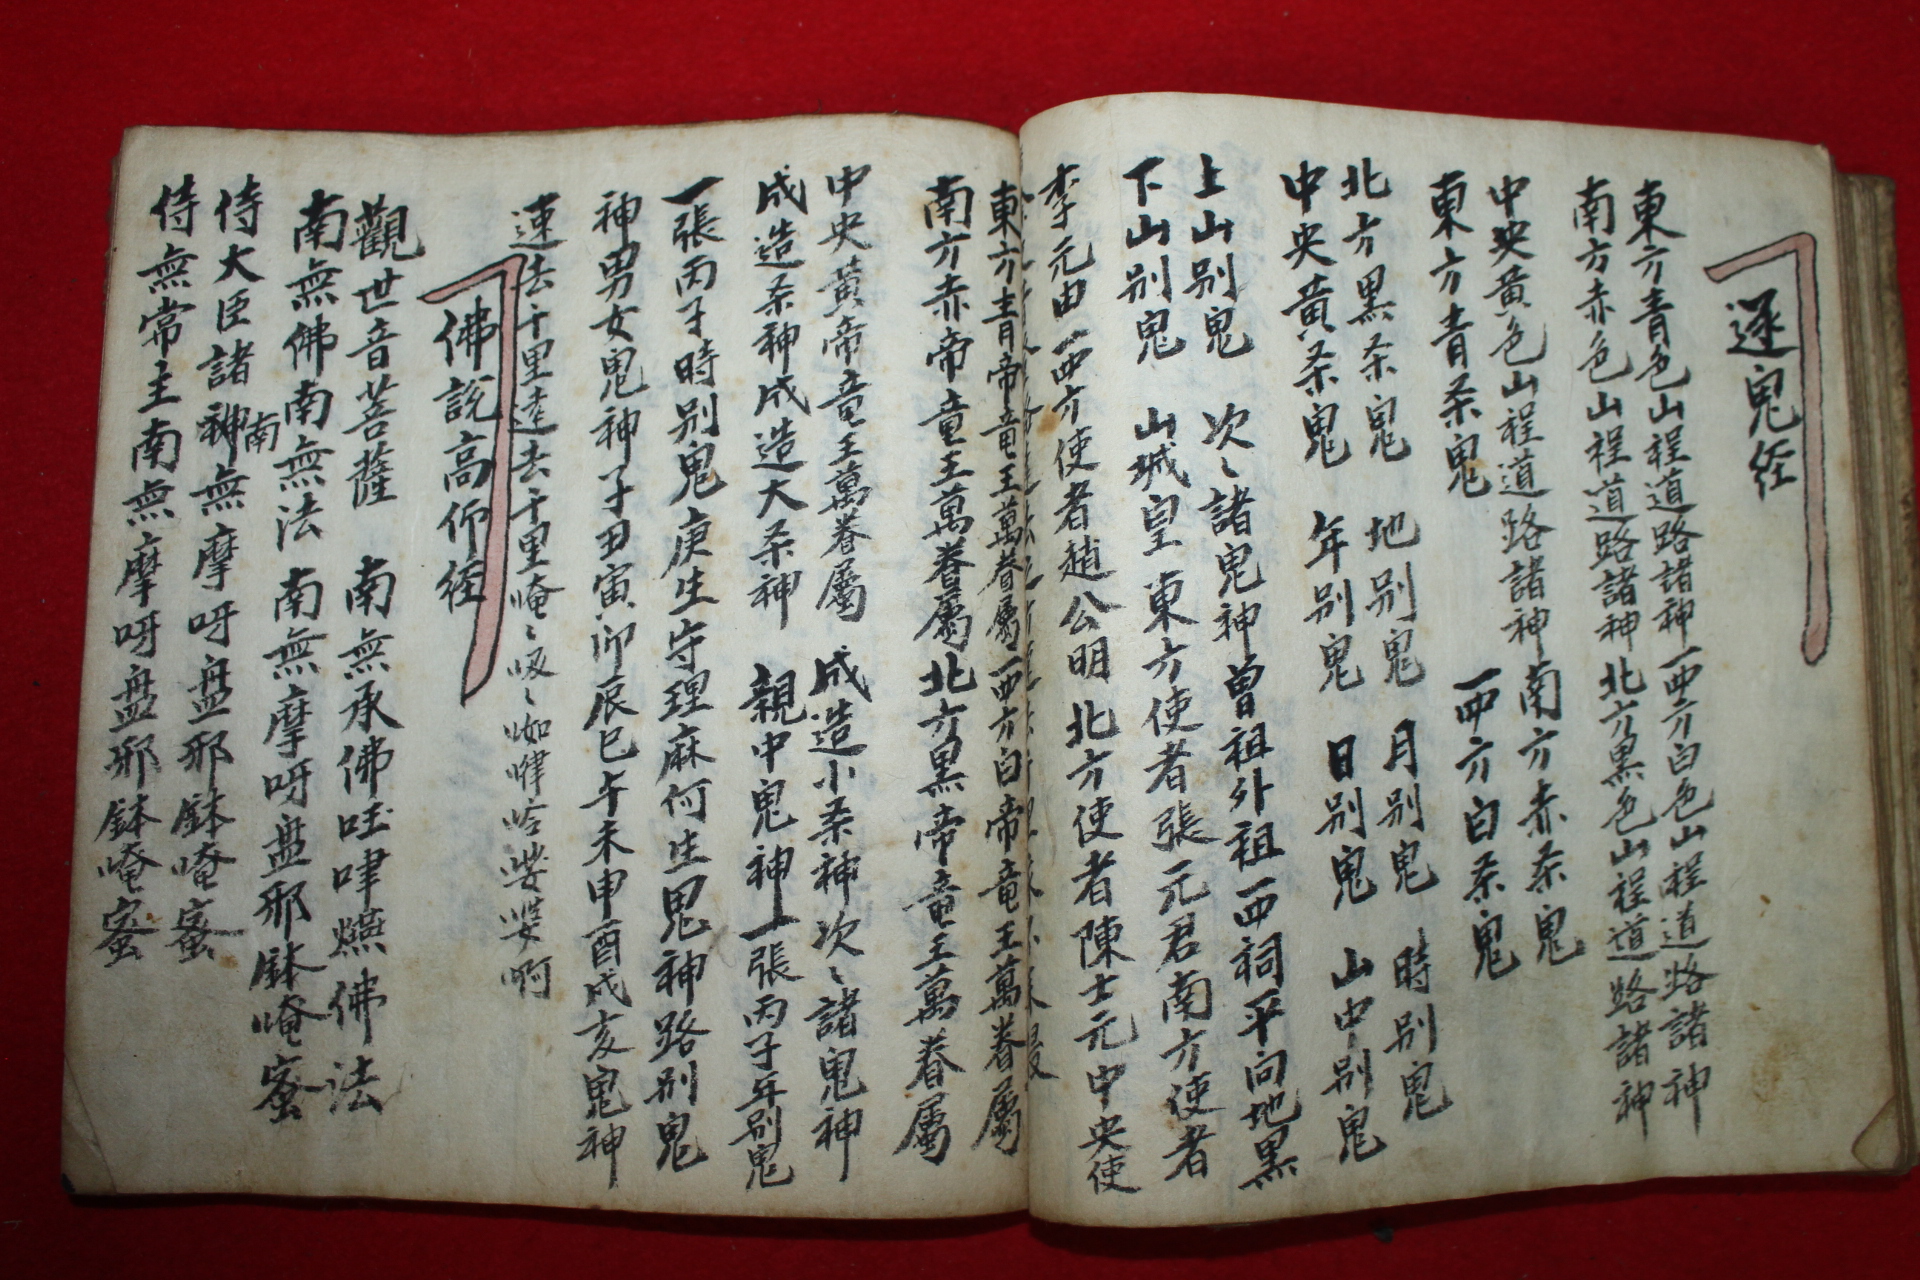 逐鬼経
東方青色山程道路諸神西方白色山程道路諸神
南方赤色山程道路諸神北方黒色山程道路諸神
中央黃色山程道路諸神南方赤杀鬼
東方青杀鬼 西方白杀鬼
北方黒杀鬼 地別鬼 月別鬼 時別鬼
中央黃杀鬼 年別鬼 日別鬼 山中別鬼
上山別鬼 次〻諸鬼神曽祖外祖四祠平向地黒
下山別鬼 山城皇東方使者張元君南方使者
李元由西方使者趙公明北方使者陳士元中央使
東方青帝竜王萬眷屬西方白帝竜王萬眷屬
南方赤帝竜王萬眷屬北方黒帝竜王萬眷屬
中央黃帝竜王萬眷屬 成造小杀神次〻諸鬼神
成造杀神成造大杀神 親中鬼神一張丙子年別鬼
一張丙子時別鬼庚生守理麻何生鬼神路別鬼
神男女鬼神子丑寅卯辰巳午未申酉戌亥鬼神
速去千里遠去千里唵〻
佛說高仰経
觀世音菩薩 南無承佛 佛法
南無佛南無法 南無摩呀盤邪鉢唵蜜
侍大臣諸神南無摩呀盤邪鉢唵蜜
侍無常主南無摩呀盤邪鉢唵蜜